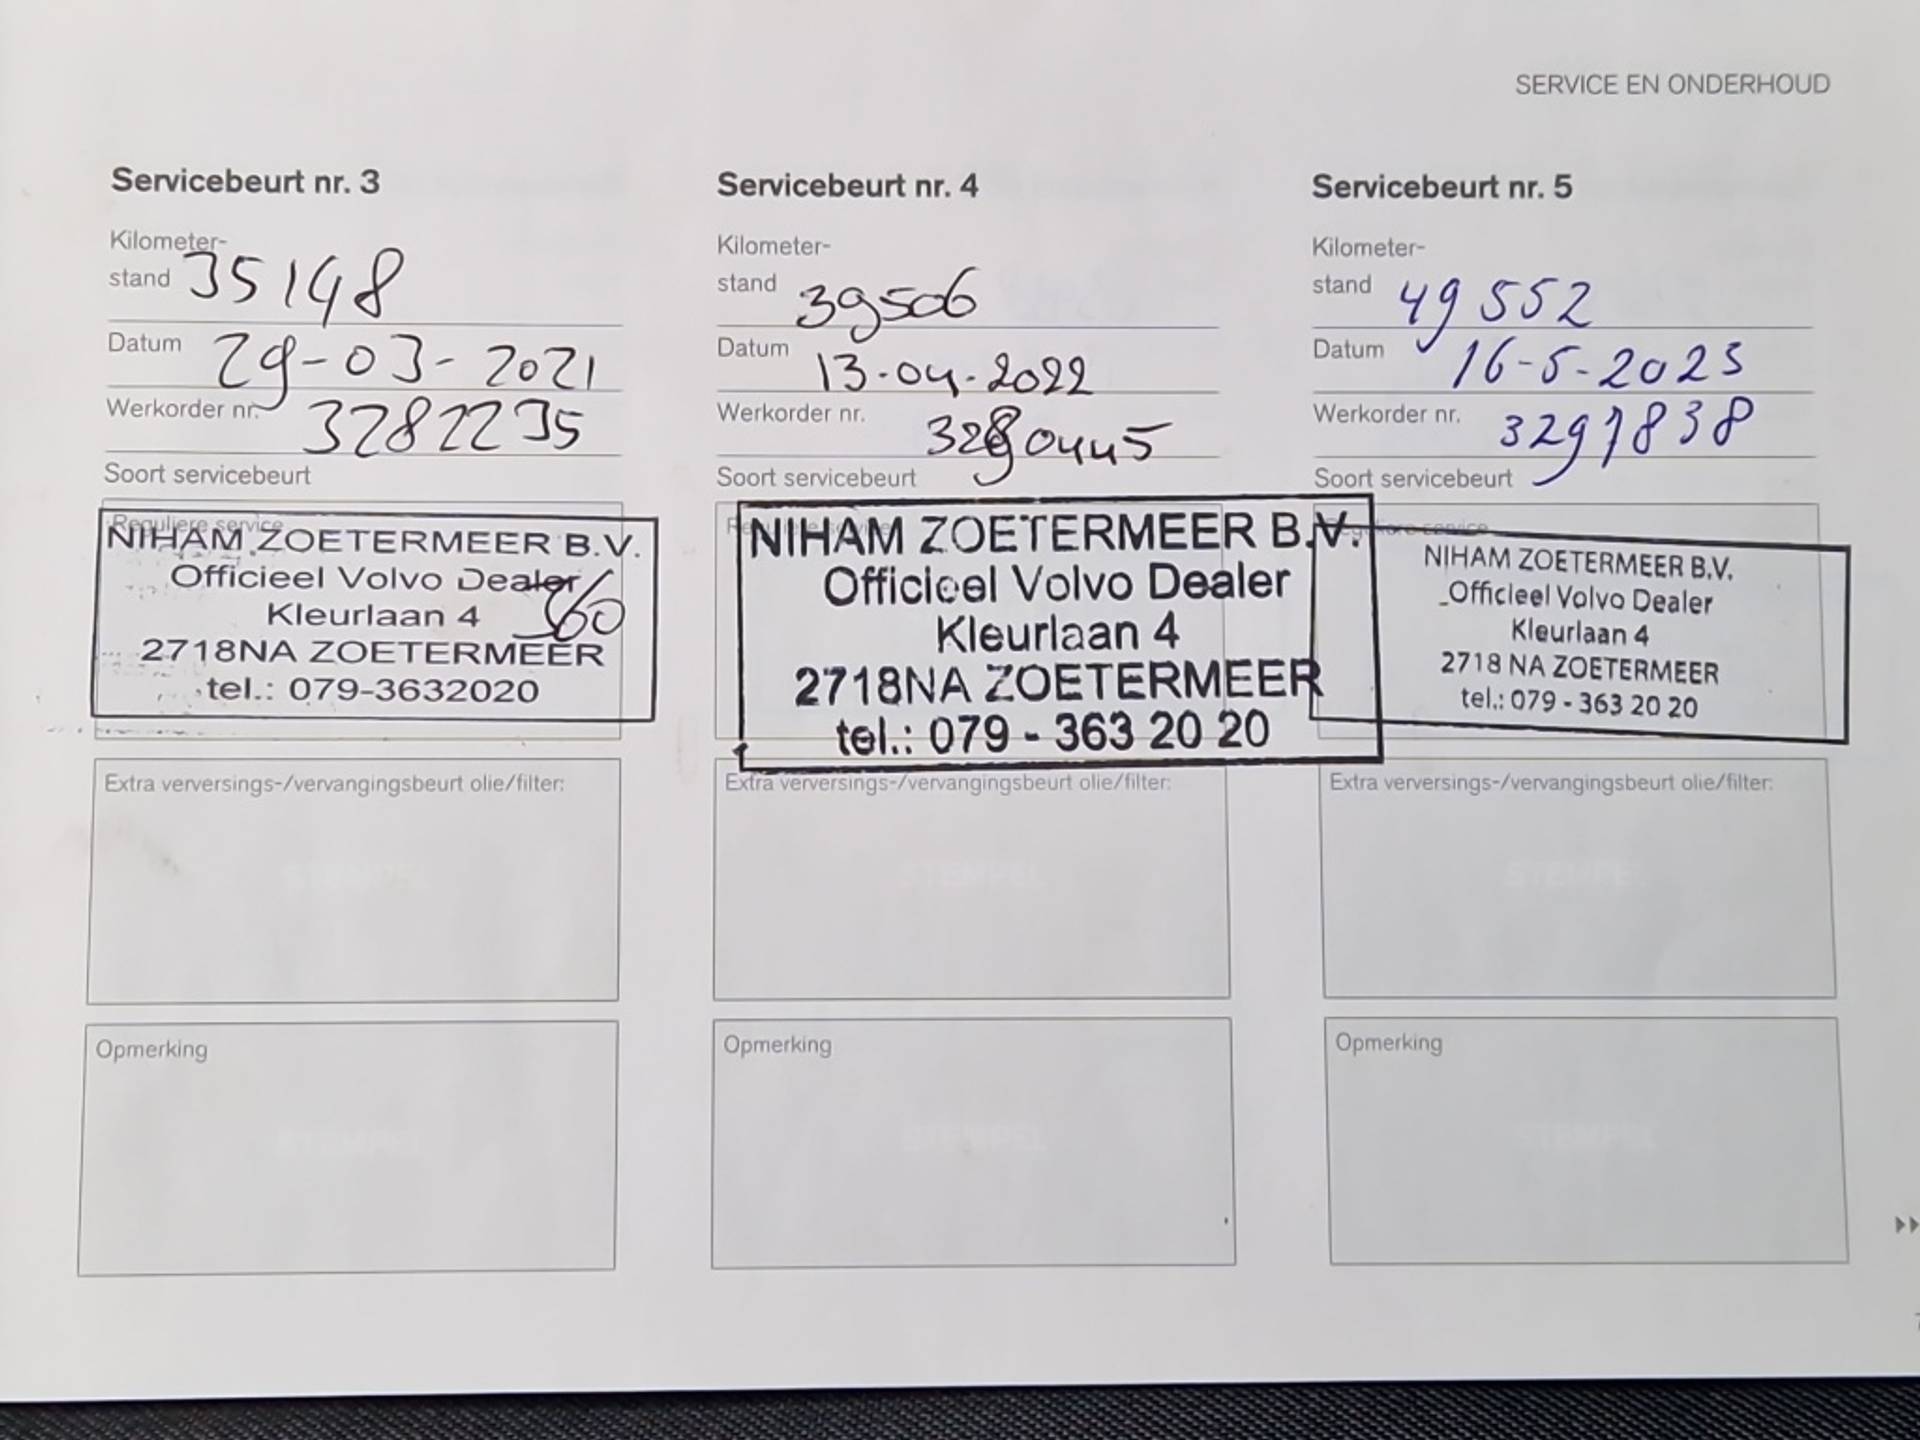 SERVICE EN ONDERHOUD
Servicebeurt nr. 3
Kilometer-
stand 35148
Datum 29-03-2021
Werkorder nr. 3282235
Soort servicebeurt
Reguliere service
NIHAM ZOETERMEER B.V.
Officieel Volvo Dealer
Kleurlaan 4
2718NA ZOETERMEER
tel.: 079-3632020
Extra verversings-/vervangingsbeurt olie/filter:
STEMPEL
Opmerking
STEMPEL
Servicebeurt nr. 4
Kilometer-
stand 39506
Datum 13-04-2022
Werkorder nr. 3290445
Soort servicebeurt
Reguliere service
NIHAM ZOETERMEER B.V.
Officieel Volvo Dealer
Kleurlaan 4
2718NA ZOETERMEER
tel.: 079 - 363 20 20
Extra verversings-/vervangingsbeurt olie/filter:
STEMPEL
Opmerking
STEMPEL
Servicebeurt nr. 5
Kilometer-
stand 49552
Datum 16-5-2023
Werkorder nr. 3297838
Soort servicebeurt
Reguliere service
NIHAM ZOETERMEER B.V.
Officieel Volvo Dealer
Kleurlaan 4
2718 NA ZOETERMEER
tel.: 079 - 363 20 20
Extra verversings-/vervangingsbeurt olie/filter:
STEMPEL
Opmerking
STEMPEL